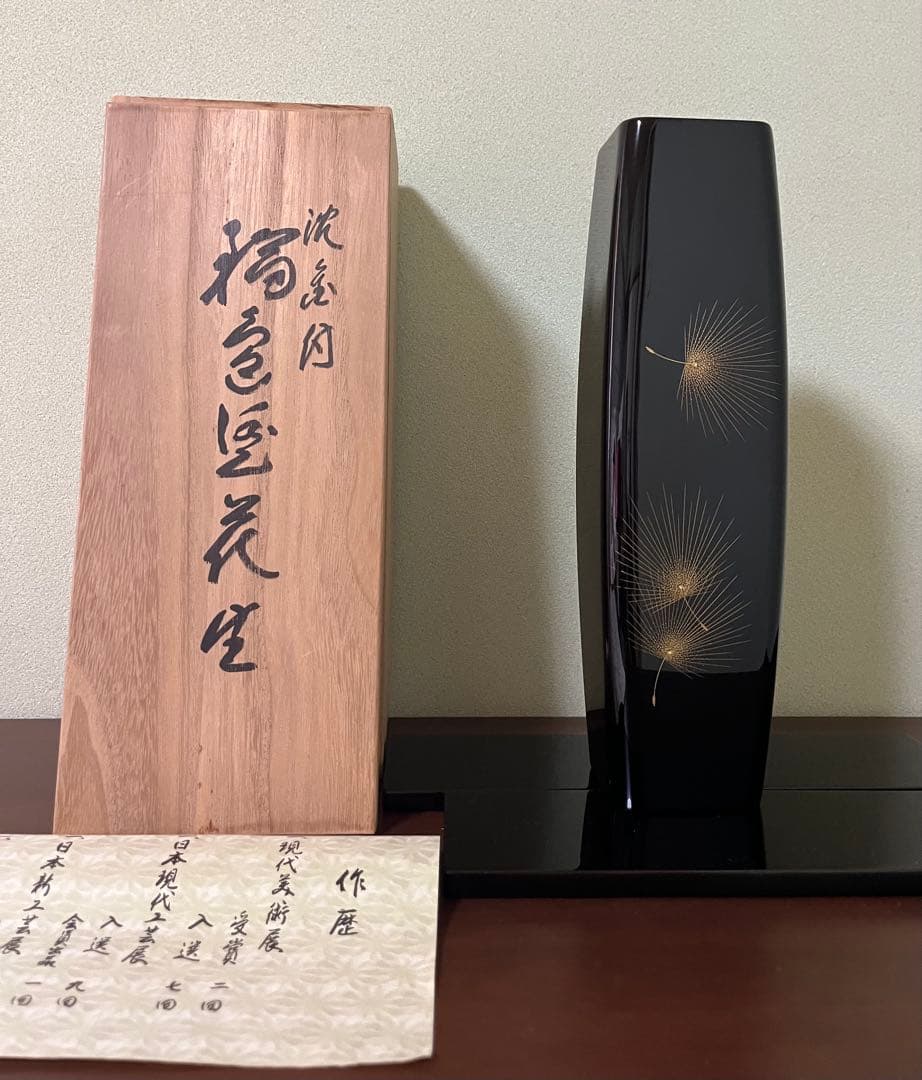 沈金付
輪島塗花生
作歴
現代美術展
受賞 二回
入選 七回
日本現代工芸展
入選 九回
日本新工芸展
会員賞 一回